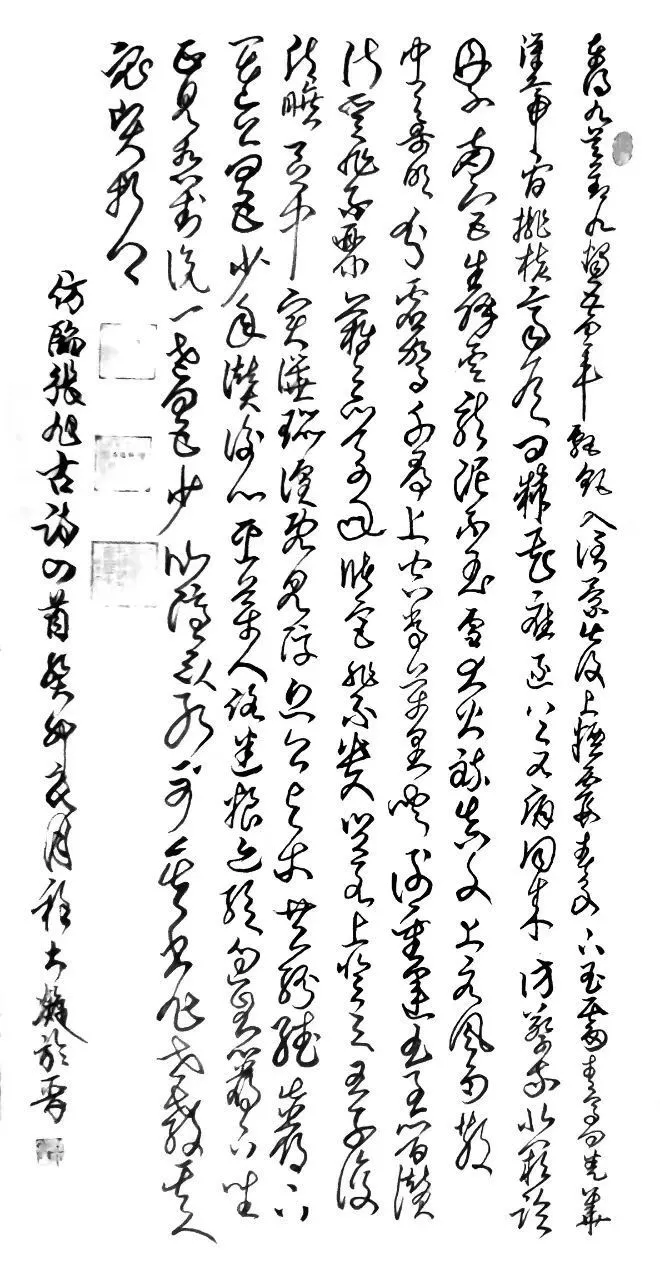 東明九芝盖北燭五雲車飄飖入倒景出没上煙霞春泉下玉霤青鳥向金華
漢帝看桃核齊侯问棘花應逐上元酒同來訪蔡家北闕臨
丹水南宫生絳雲龍泥印玉策大火煉真文上元風雨散
中天哥吹分虚駕千尋上空香萬里闻謝靈運王子晋讚
淑質非不麗難以之百年儲宫非不貴豈若上登天王子復
清曠區中實譁嚣喧既見浮丘公與尔共紛繙巖下
一老公四五少年讚衡山采藥人路迷粮亦絶過息巖下坐
正見相對説一老四五少仙隱不别可其書非世教其人
必賢哲
仿臨張旭古詩四首癸卯亥月程大於晋